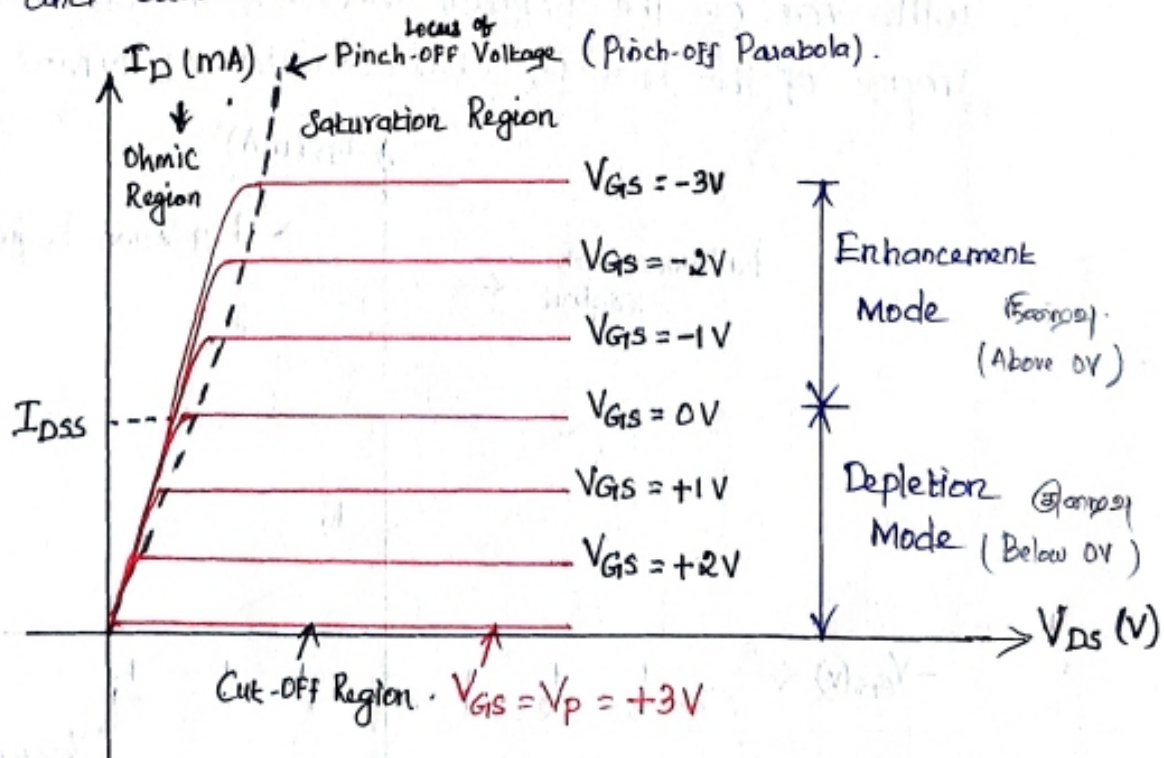 Locus of
I_D (mA) ← Pinch-OFF Voltage (Pinch-off Parabola).
Ohmic
Region
Saturation Region
V_GS = -3V
V_GS = -2V
V_GS = -1V
I_DSS
V_GS = 0V
V_GS = +1V
V_GS = +2V
Enhancement
Mode
(Above 0V)
Depletion
Mode
(Below 0V)
V_DS (V)
Cut-OFF Region.
V_GS = V_P = +3V